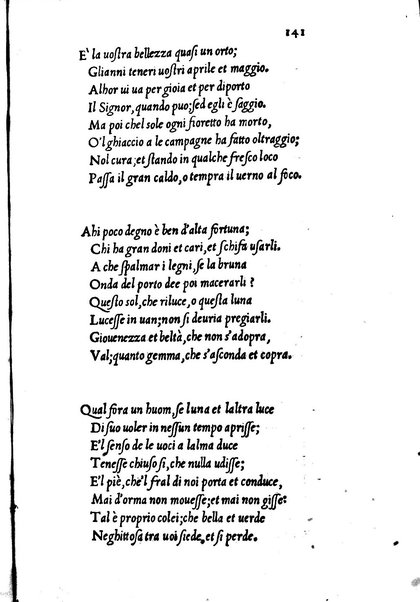 141
E' la uoſtra bellezza quaſi un orto;
Glianni teneri uoſtri aprile et maggio.
Alhor ui ua per gioia et per diporto
Il Signor, quando puo; ſed egli è ſaggio.
Ma poi chel sole ogni fioretto ha morto,
O'l ghiaccio a le campagne ha fatto oltraggio;
Nol cura; et ſtando in qualche freſco loco
Paſſa il gran caldo, o tempra il uerno al foco.
Ahi poco degno è ben d'alta fortuna;
Chi ha gran doni et cari, et ſchifa uſarli.
A che ſpalmar i legni, ſe la bruna
Onda del porto dee poi macerarli?
Queſto sol, che riluce, o queſta luna
Luceſſe in uan; non ſi deuria pregiarli.
Giouenezza et beltà, che non s'adopra,
Val; quanto gemma, che s'aſconda et copra.
Qual fora un huom, ſe luna et laltra luce
Di ſuo uoler in neſſun tempo apriſſe;
E'l ſenſo de le uoci a lalma duce
Teneſſe chiuſo ſi, che nulla udiſſe;
E'l piè, che'l fral di noi porta et conduce,
Mai d'orma non moueſſe; et mai non giſſe:
Tal è proprio colei; che bella et uerde
Neghittoſa tra uoi ſiede, et ſi perde.